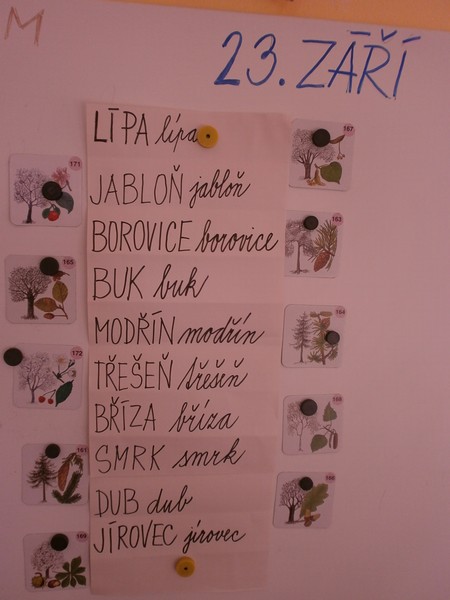 M
23. ZÁŘÍ
LÍPA lípa
JABLOŇ jabloň
BOROVICE borovice
BUK buk
MODŘÍN modřín
TŘEŠEŇ třešeň
BŘÍZA bříza
SMRK smrk
DUB dub
JÍROVEC jírovec
171
165
172
161
169
167
163
164